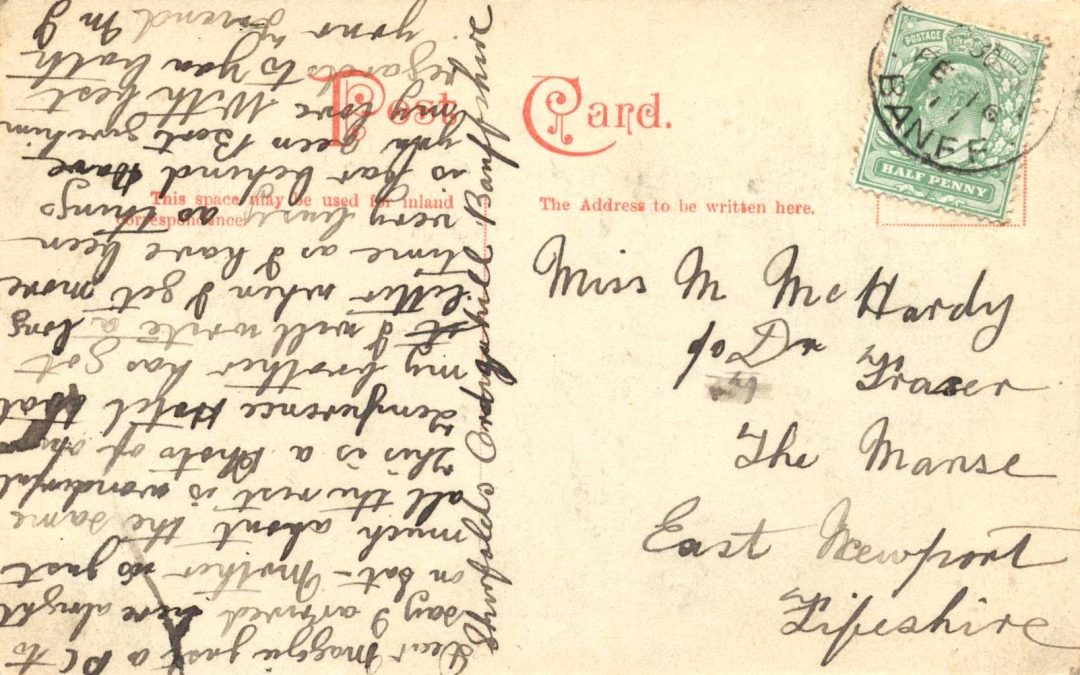 Post Card.
This space may be used for inland
correspondence.
The Address to be written here.
POSTAGE REVENUE
HALF PENNY
BANFF
FE 16
11
Miss M McHardy
c/o Dr Fraser
The Manse
East Newport
Fifeshire
Ordiquhill Banffshire
Dear Maggie just a PC to
say I arrived here alright
on Sat - Mother is just
much about the same
all the rest is wonderful
This is a Photo of the
Temperence Hotel that
my brother has got
I will write a long
letter when I get more
time as I have been
very busy as things
is far behind have
you seen Bert give him
my love With best
regards to you both
your friend